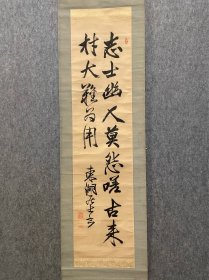 志士幽人莫怨嗟古来
材大難為用